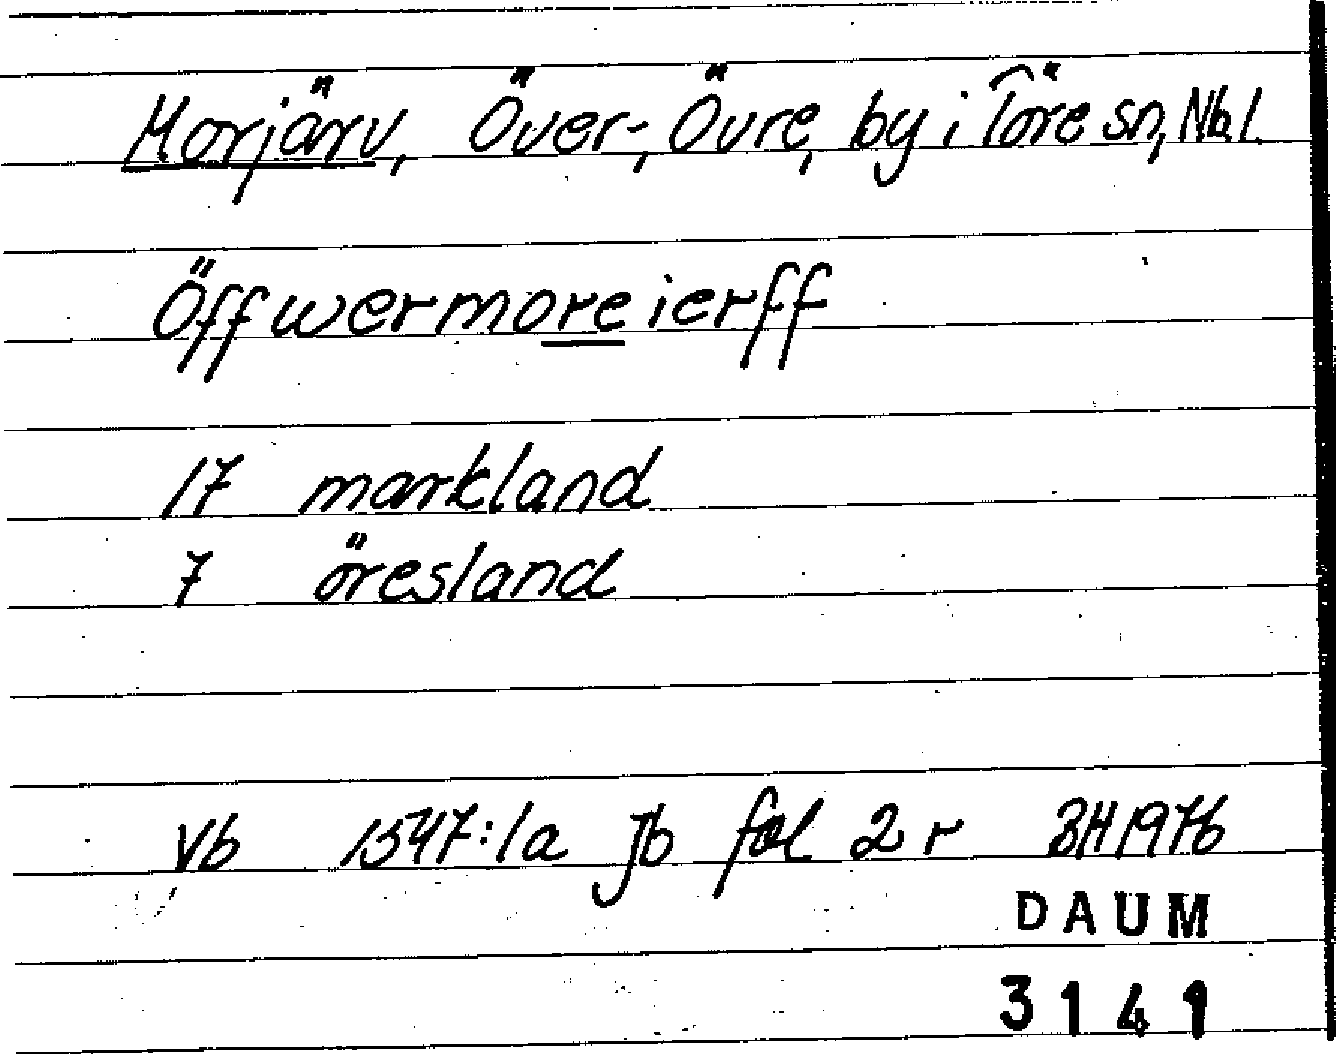 Morjärv, Över-, Övre, by i Töre sn, Nb.l.
Öffwermoreierff
17 markland
7 öresland
Vb 1547:1a Jb fol 2 r BH 1976
DAUM
3141